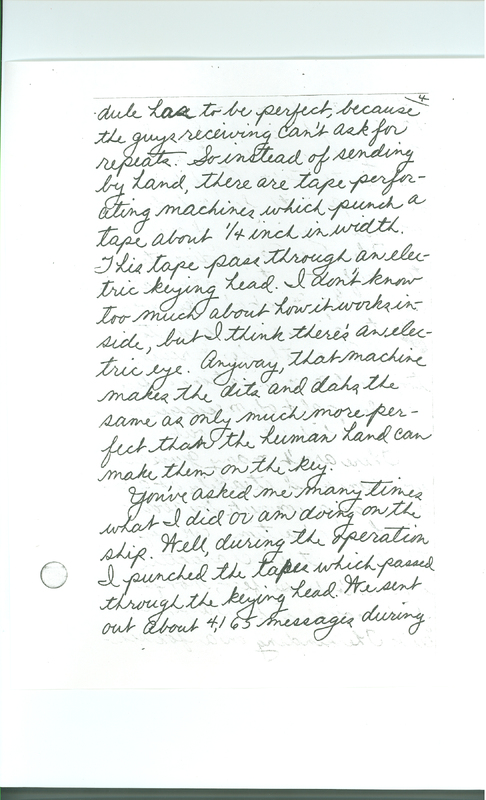 4
dule has to be perfect, because
the guys receiving can't ask for
repeats. So instead of sending
by hand, there are tape perfor-
ating machines which punch a
tape about 1/4 inch in width.
This tape pass through an elec-
tric keying head. I don't know
too much about how it works in-
side, but I think there's an elec-
tric eye. Anyway, that machine
makes the dits and dahs the
same as only much more per-
fect than the human hand can
make them on the key.
You've asked me many times
what I did or am doing on the
ship. Well, during the operation
I punched the tapes which passed
through the keying head. We sent
out about 4,165 messages during